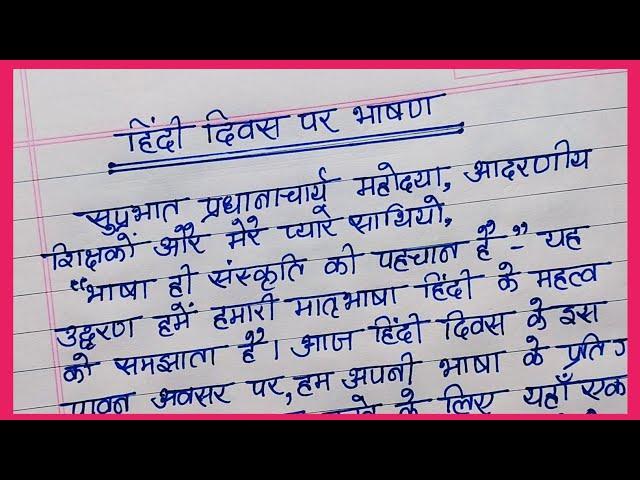 हिंदी दिवस पर भाषण
सुप्रभात प्रधानाचार्य महोदया, आदरणीय
शिक्षकों और मेरे प्यारे साथियों,
"भाषा ही संस्कृति की पहचान है" - यह
उद्धरण हमें हमारी मातृभाषा हिंदी के महत्व
को समझाता है। आज हिंदी दिवस के इस
पावन अवसर पर, हम अपनी भाषा के प्रति
के लिए यहाँ एक